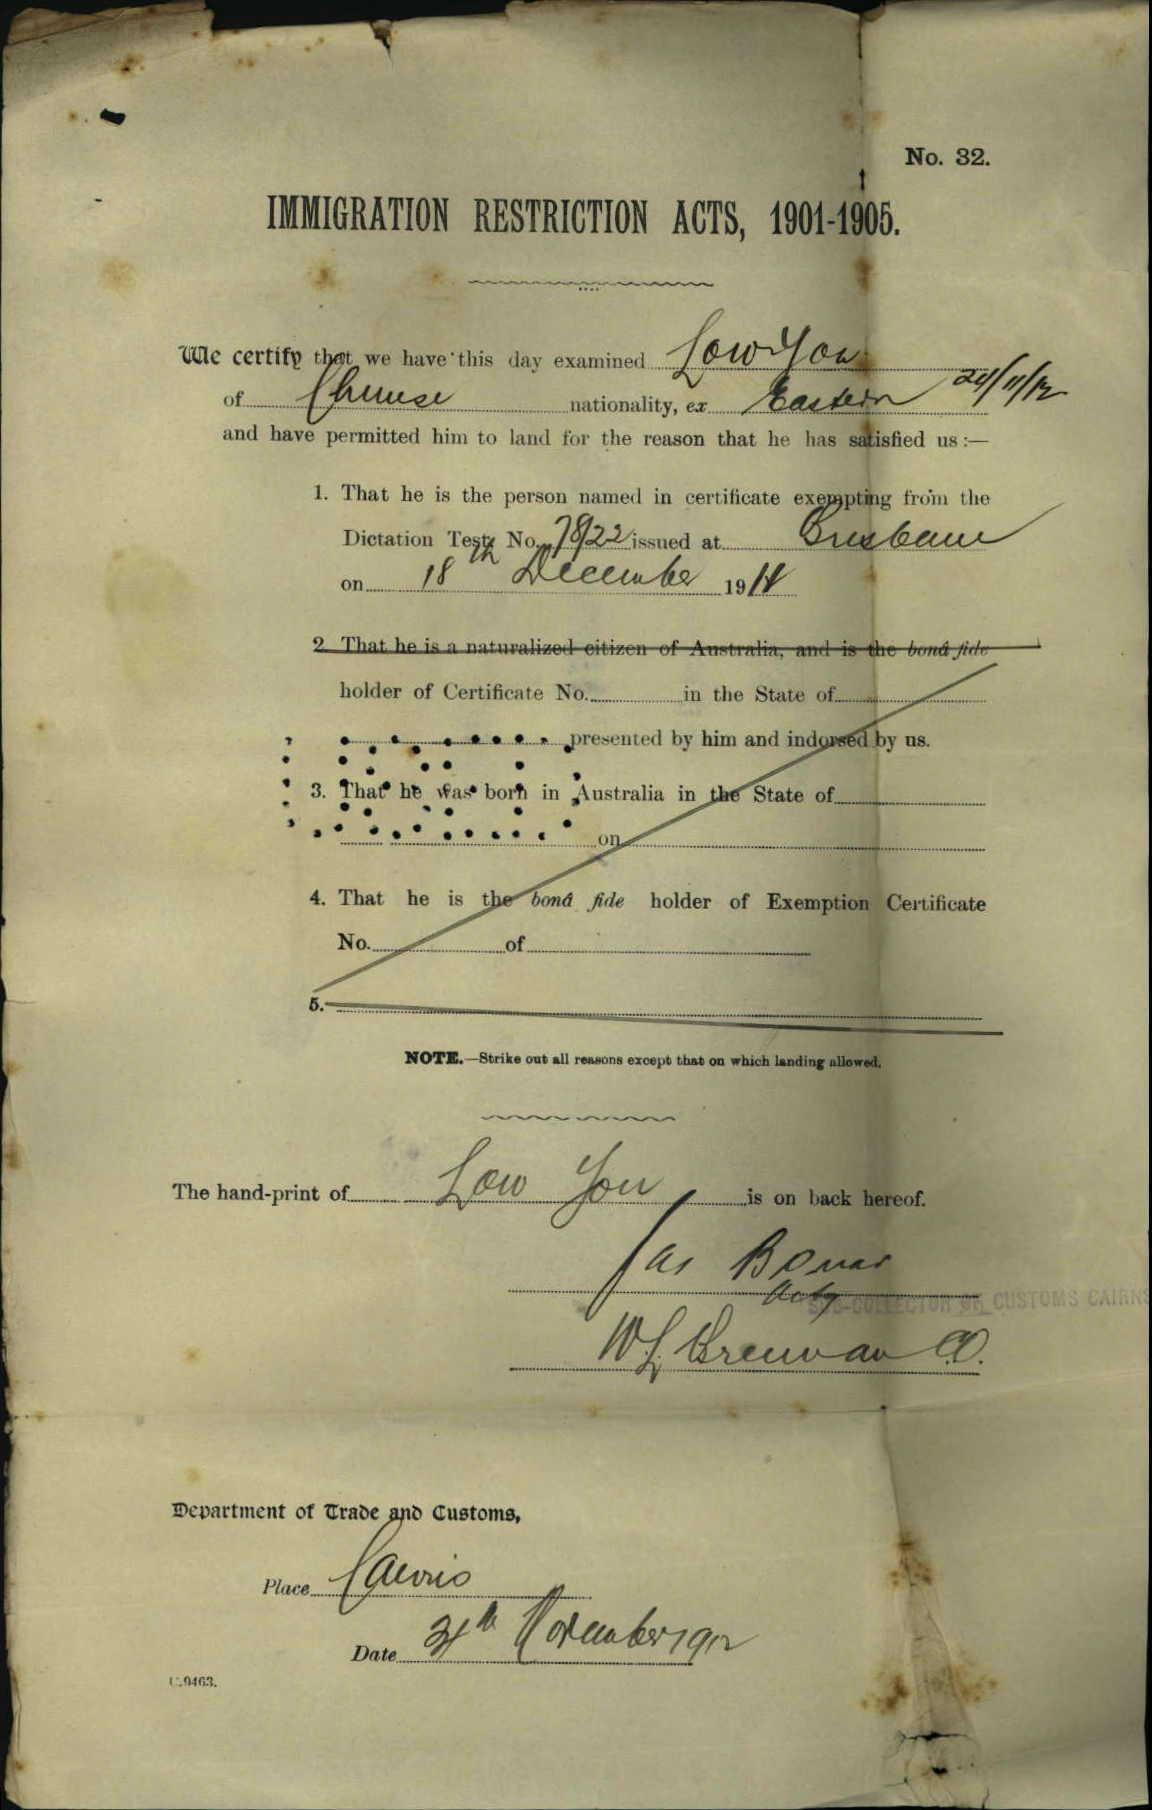 No. 32.
IMMIGRATION RESTRICTION ACTS, 1901-1905.
We certify that we have this day examined Low You
of Chinese nationality, ex Eastern 24/11/12
and have permitted him to land for the reason that he has satisfied us :—
1. That he is the person named in certificate exempting from the
Dictation Test, No. 78/22 issued at Brisbane
on 18th December 1911
2. That he is a naturalized citizen of Australia, and is the boná fide
holder of Certificate No. in the State of
presented by him and indorsed by us.
3. That he was born in Australia in the State of
on
4. That he is the boná fide holder of Exemption Certificate
No. of
5.
NOTE.—Strike out all reasons except that on which landing allowed.
The hand-print of Low You is on back hereof.
Jas Bonar
Actg
SUB-COLLECTOR OF CUSTOMS CAIRNS
W L Brennan C.O.
Department of Trade and Customs,
Place Cairns
Date 24th November 1912
C.9463.